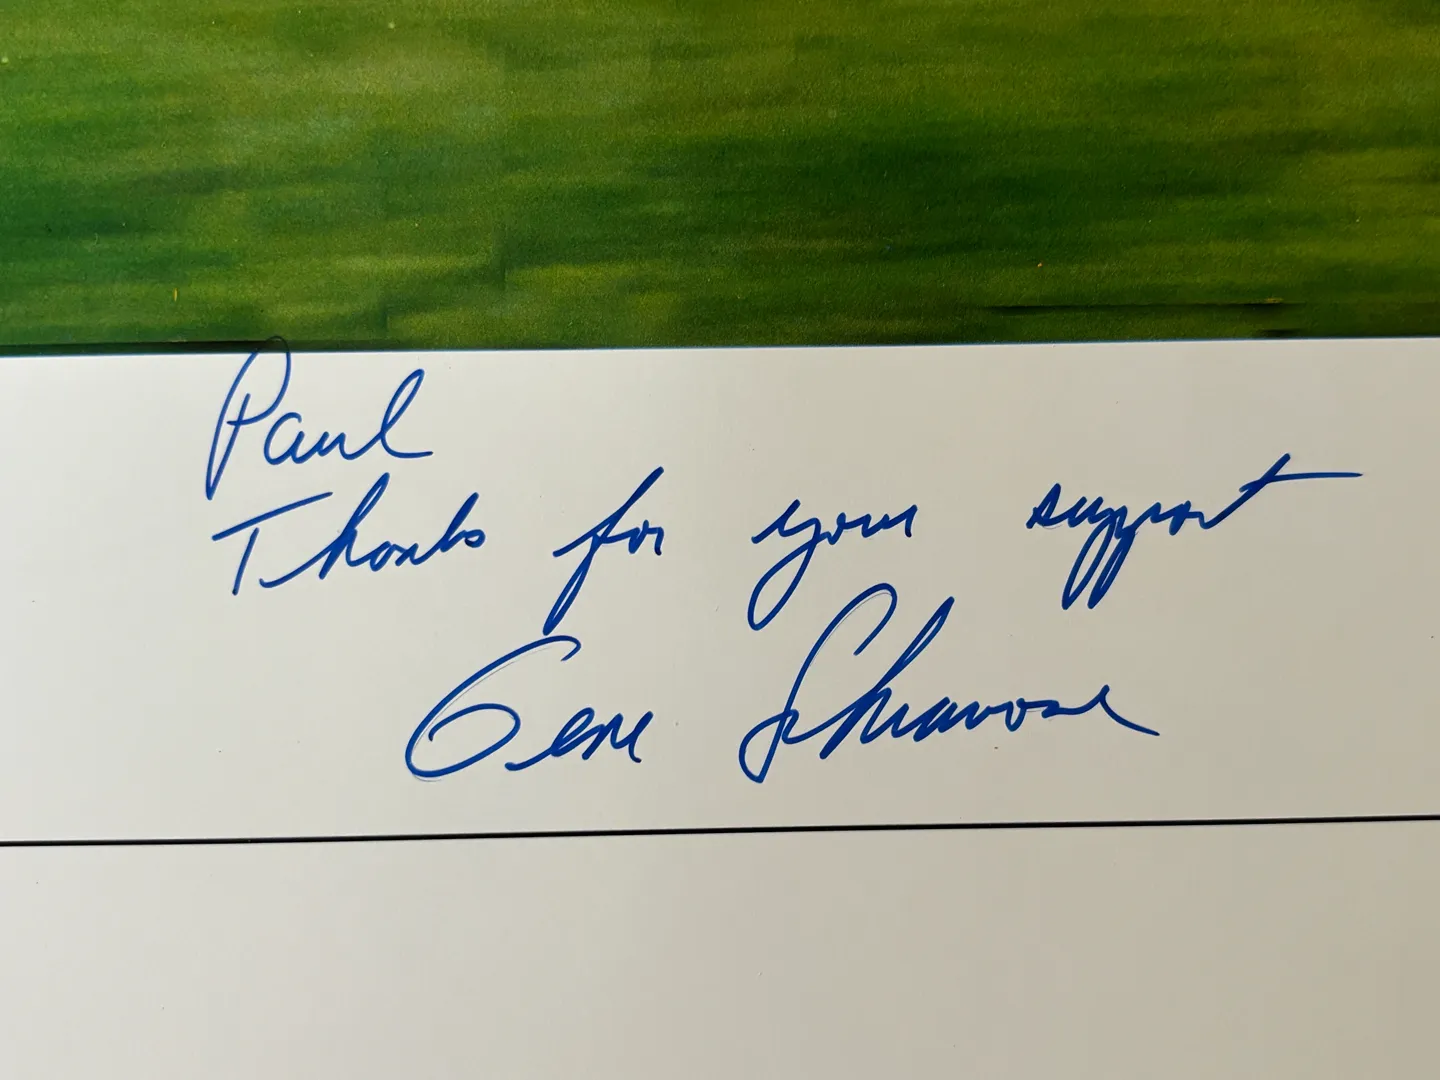 Paul
Thanks for your support
Gene Schiavone